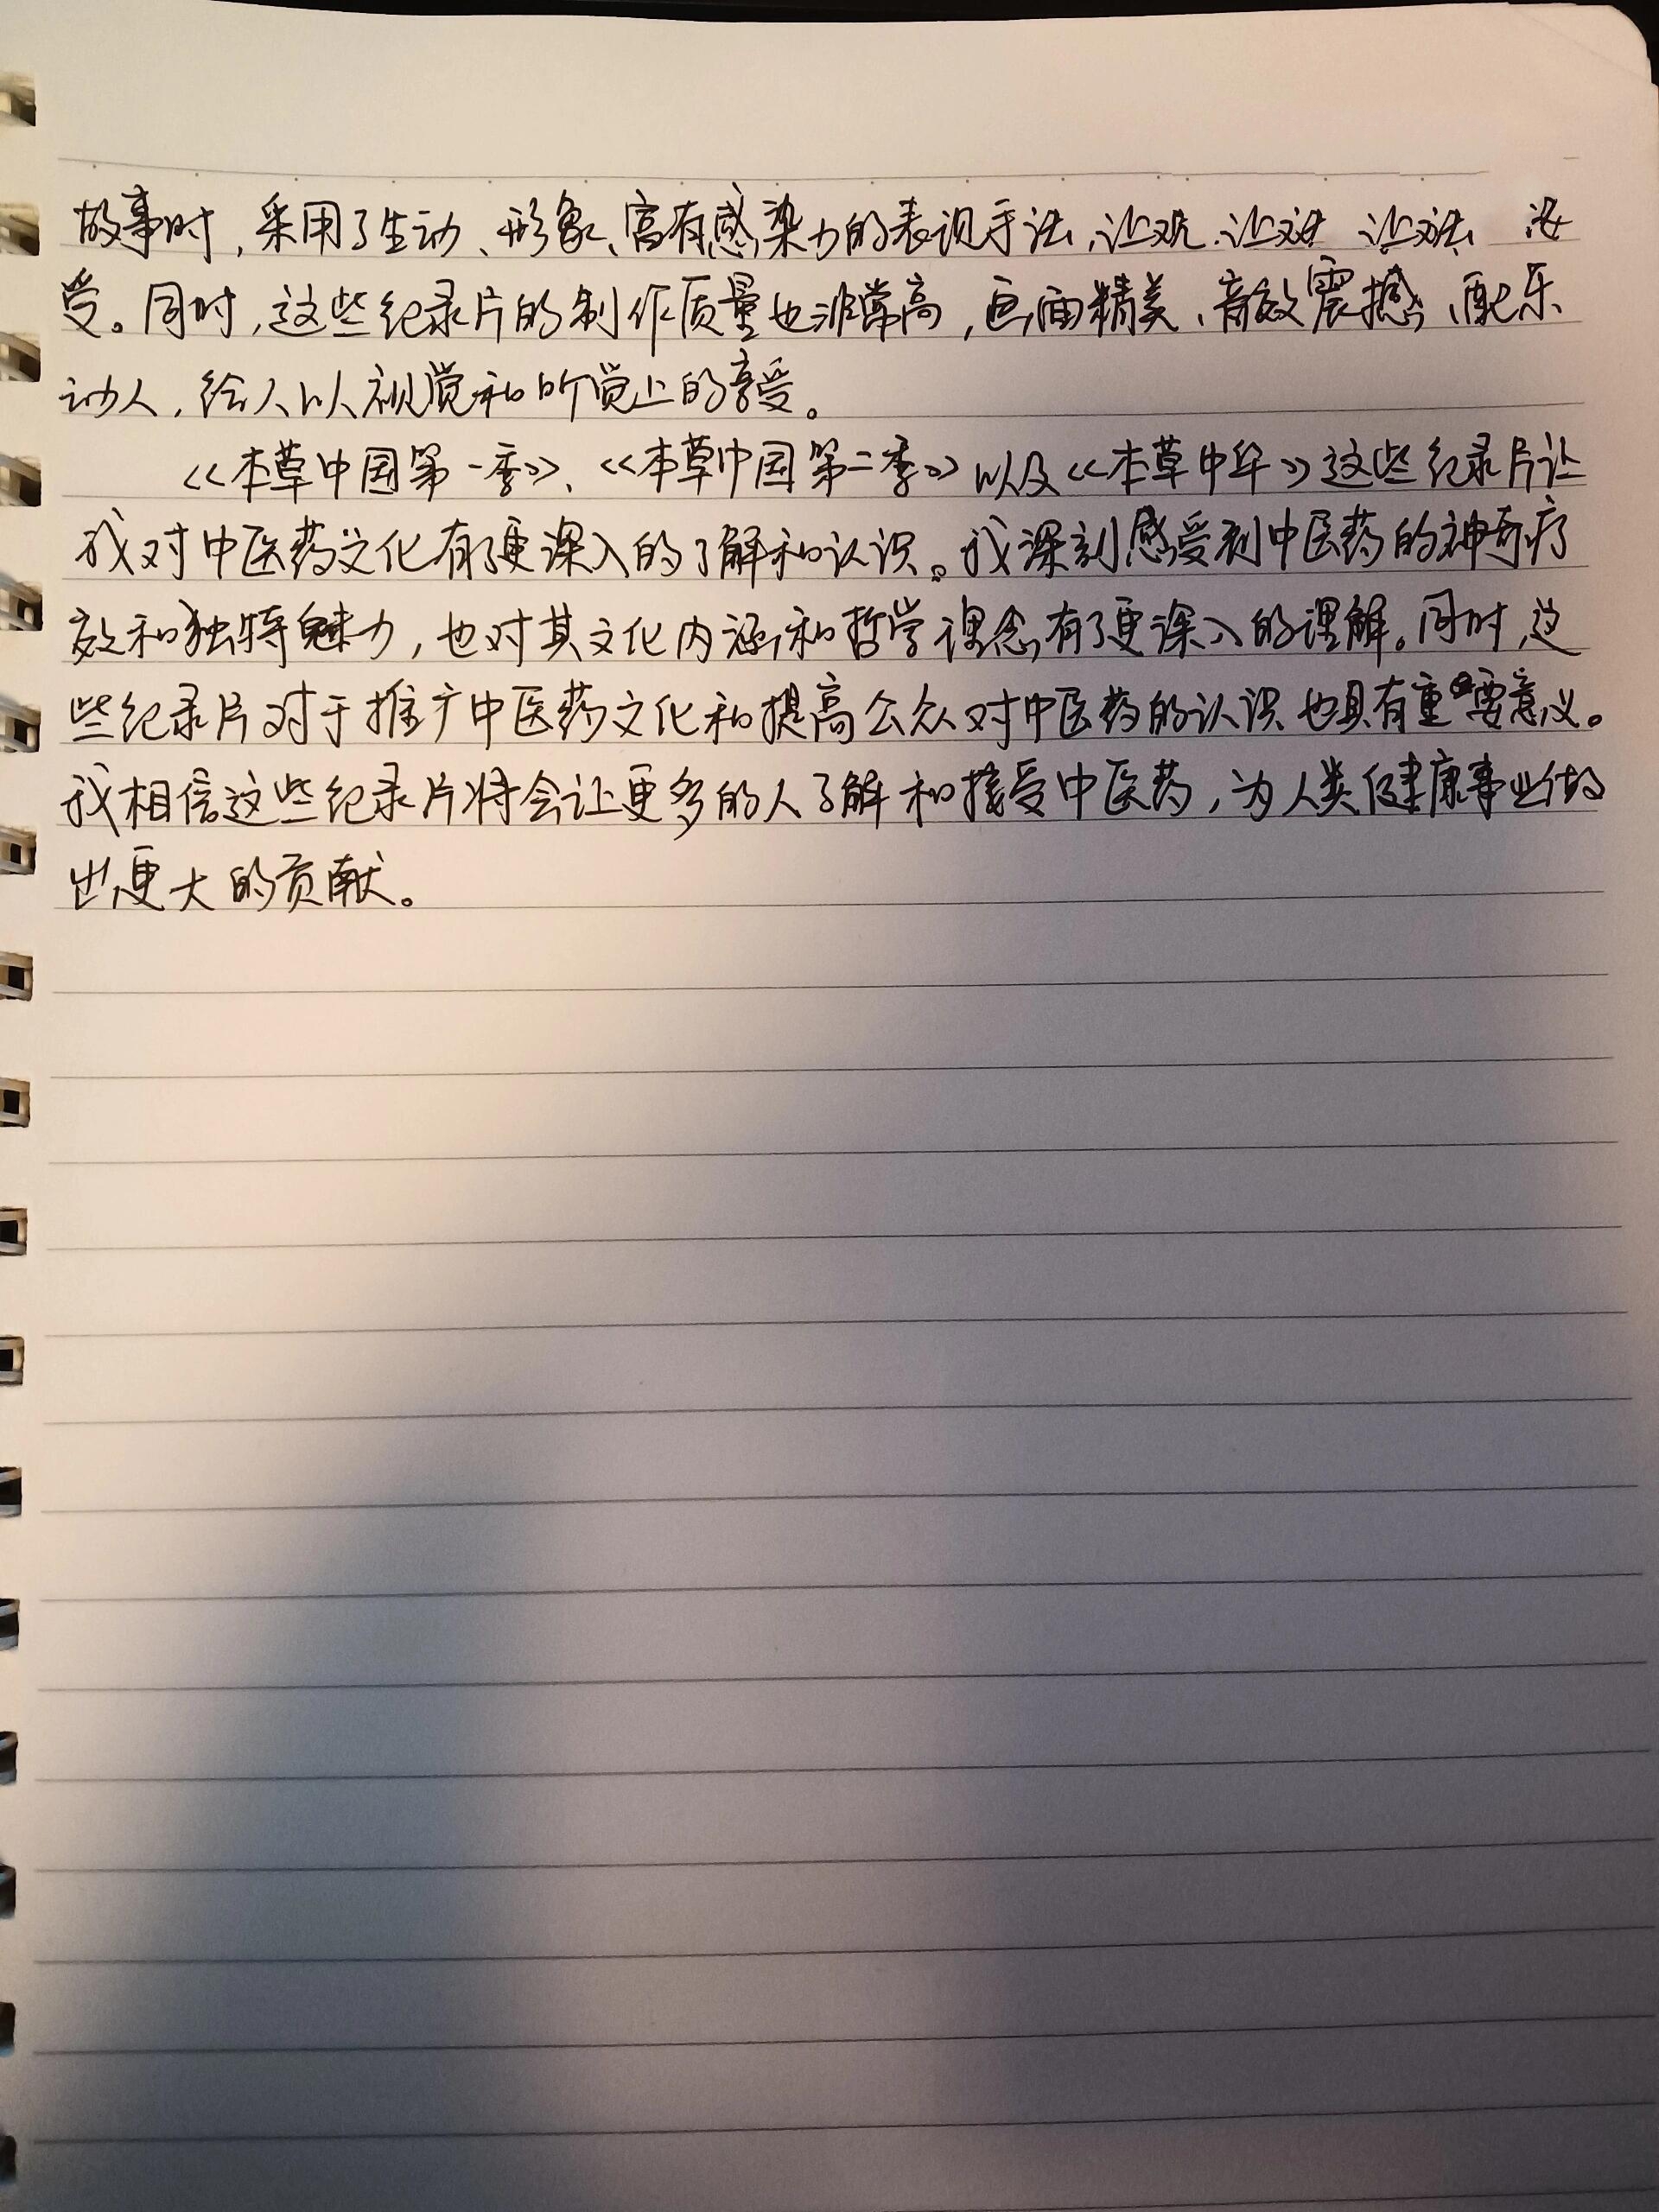 故事时，采用了生动、形象、富有感染力的表现手法，让观
受。同时，这些纪录片的制作质量也非常高，画面精美、音效震撼、配乐
动人，给人以视觉和听觉上的享受。
《本草中国第一季》、《本草中国第二季》以及《本草中华》这些纪录片让
我对中医药文化有了更深入的了解和认识。我深刻感受到中医药的神奇疗
效和独特魅力，也对其文化内涵和哲学理念有了更深入的理解。同时，这
些纪录片对于推广中医药文化和提高公众对中医药的认识也具有重要意义。
我相信这些纪录片将会让更多的人了解和接受中医药，为人类健康事业做
出更大的贡献。